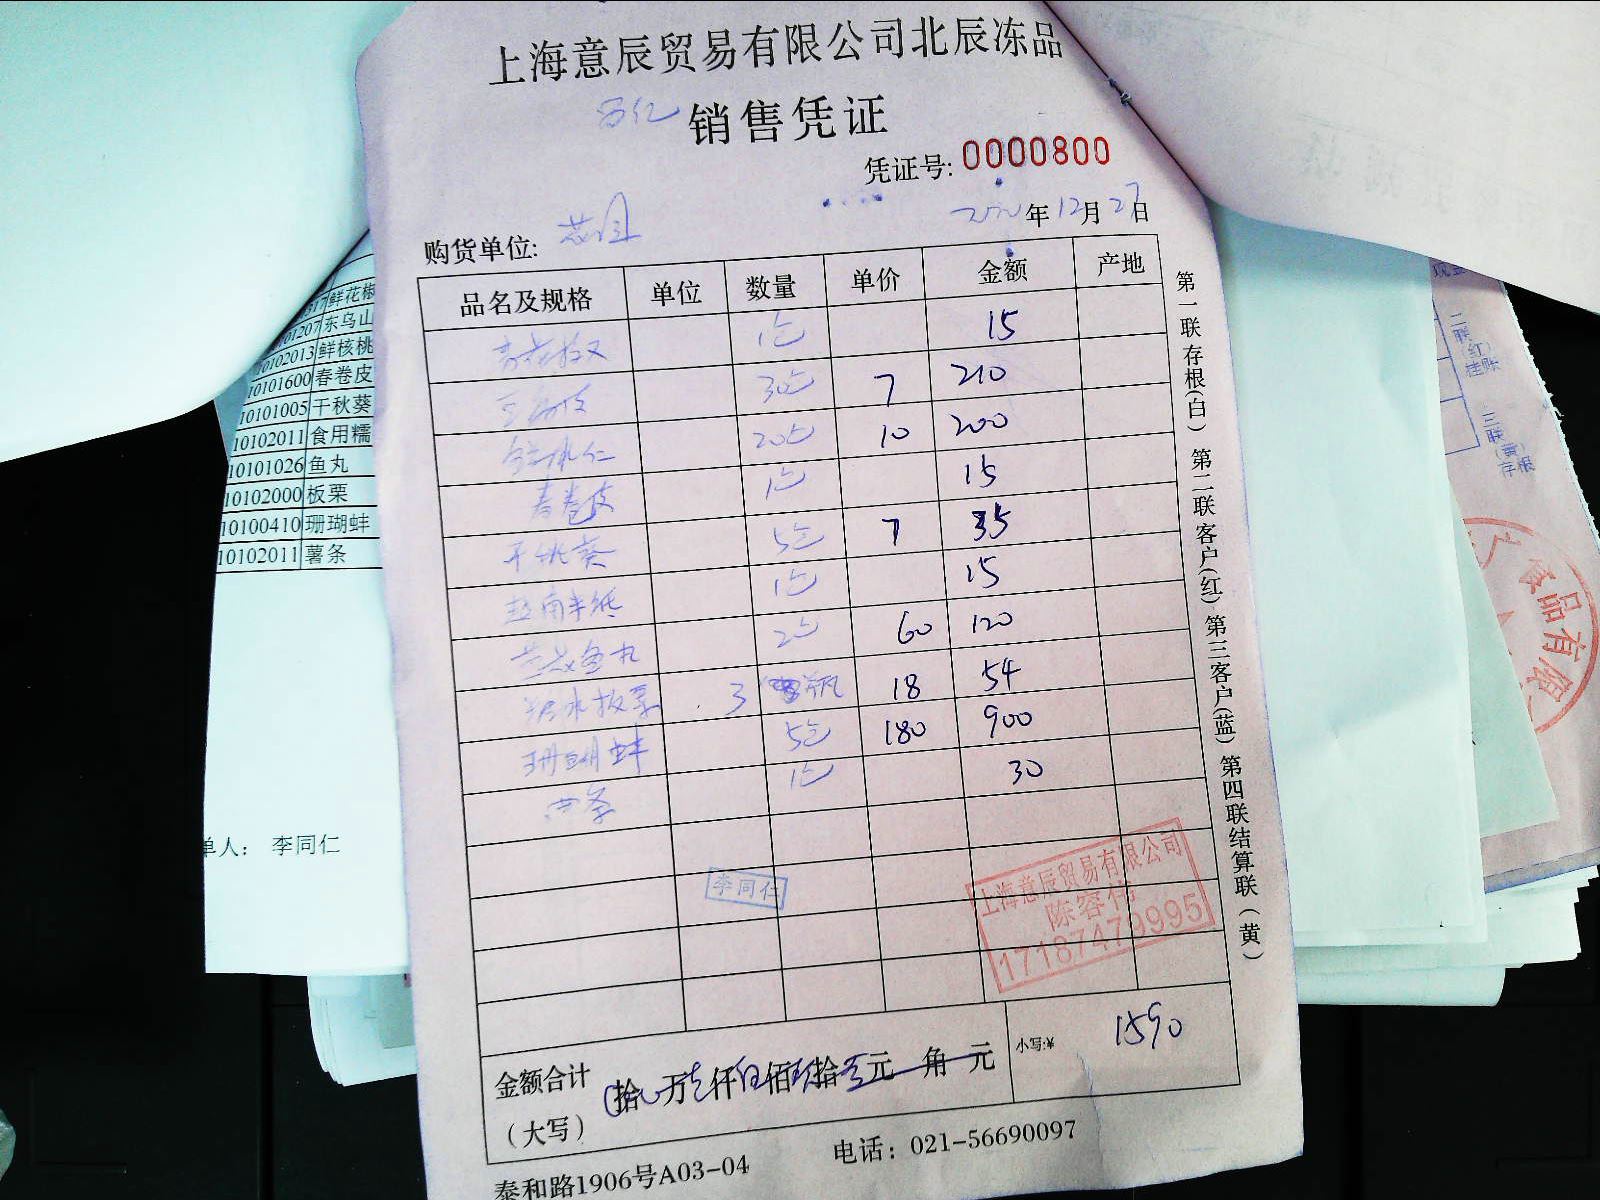 上海意辰贸易有限公司北辰冻品
销售凭证
凭证号: 0000800
年12月27日
购货单位:
品名及规格 单位 数量 单价 金额 产地
1包 15
30包 7 210
20包 10 200
春卷皮 1包 15
干秋葵 5包 7 35
越南米纸 1包 15
鱼丸 2包 60 120
糖水板栗 3 瓶 18 54
珊瑚蚌 5包 180 900
1包 30
李同仁
上海意辰贸易有限公司
17187479995
金额合计
(大写)
拾 万 仟 佰 拾 元 角 元
小写:¥ 1590
泰和路1906号A03-04
电话：021-56690097
第一联存根(白) 第二联客户(红) 第三客户(蓝) 第四联结算联(黄)
鲜花椒
东乌山
10102013 鲜核桃
10101600 春卷皮
10101005 干秋葵
10102011 食用糯
10101026 鱼丸
10102000 板栗
10100410 珊瑚蚌
10102011 薯条
单人： 李同仁
二联(红)挂账
三联(黄)存根
食品有限